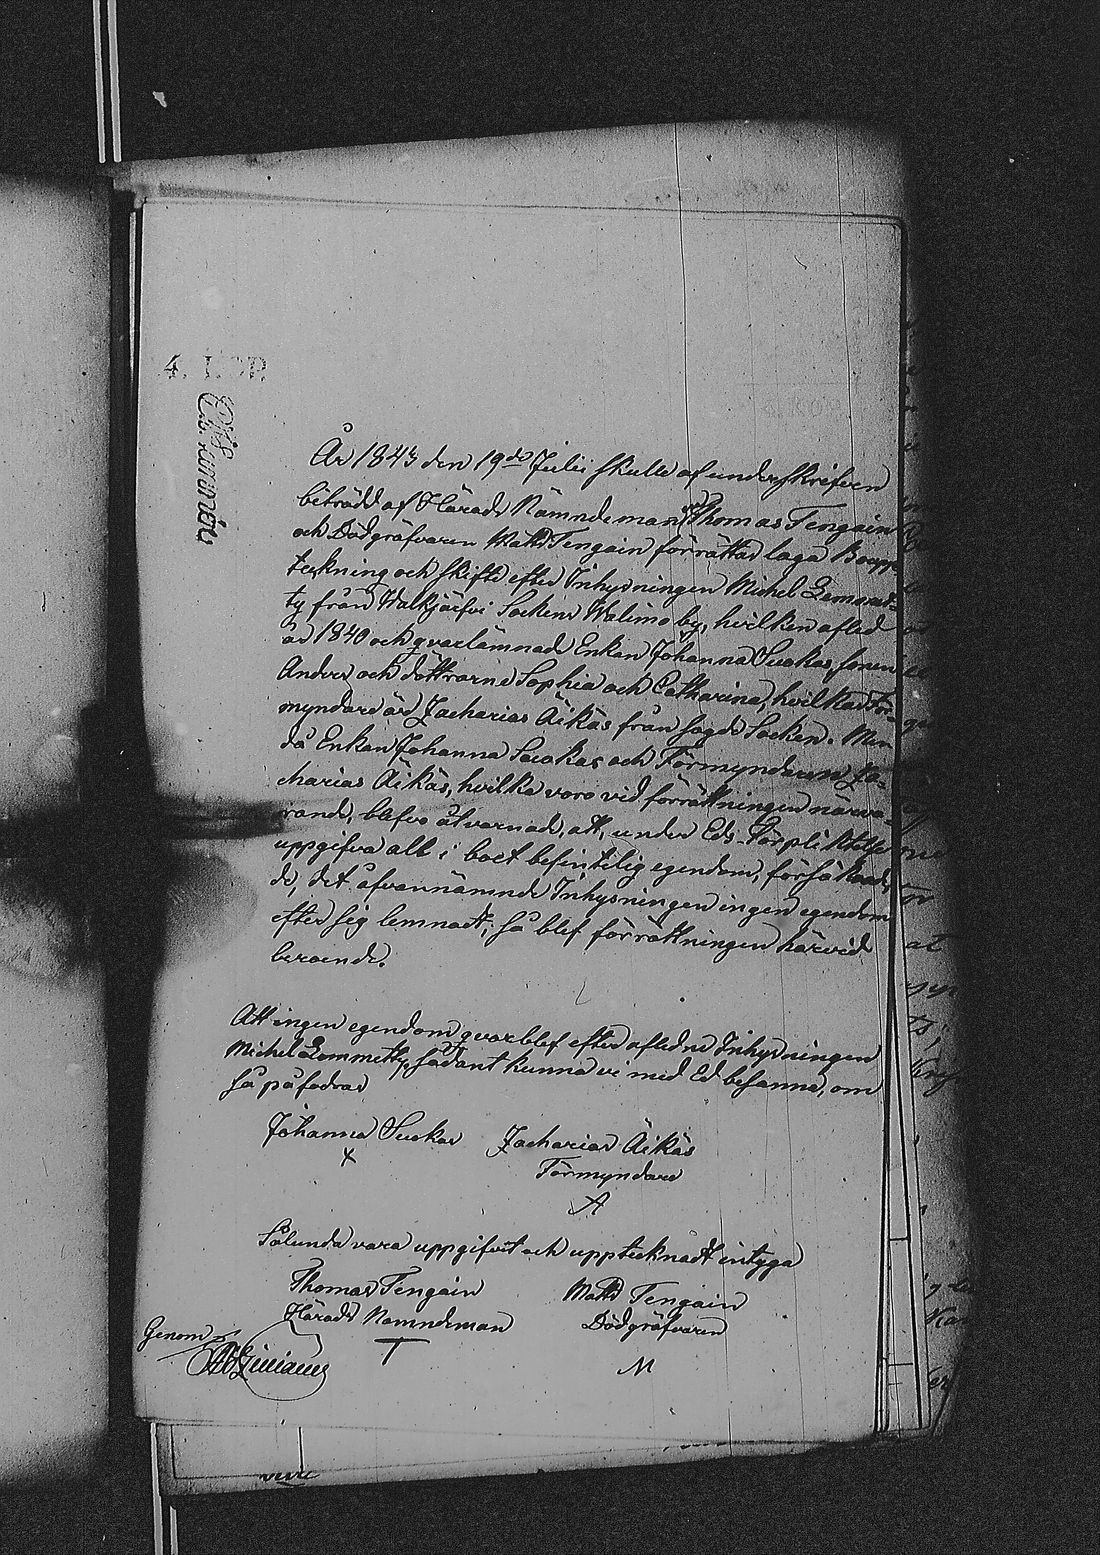 4. KOP.
År 1843 den 19de Julii skulle af underskrifven
biträdd af Härads Nämndeman Thomas Tengain
och Dödgräfvaren Matts Tengain förrättas laga Boupp-
teckning och skifte efter Inhysningen Michel Lemmet-
ty från Walkjärfvi Sockens Walimo by, hvilken afled
år 1840 och qvarlämnade Enkan Johanna Suokas, sonen
Anders och döttrarne Sophia och Catharina, hvilkas För-
myndare är Zacharias Äikäs från sagde Socken. Men
då Enkan Johanna Suokas och Förmyndaren Za-
charias Äikäs, hvilka voro vid förrättningen närva-
rande, blefvo åtvarnade, att, under Eds Förpliktelse
uppgifva allt i boet befintelig egendom, försäkrade
de, det åfvannämnde Inhysningen ingen egendom
efter sig lemnadt; så blef förrättningen härvid
beroende.
Att ingen egendom qvarblef efter afledne Inhysningen
Michel Lemmetty, sådant kunna vi med Ed besanna, om
så påfodras
Johanna Suokas Zacharias Äikäs
X Förmyndare
A
Sålunda vara uppgifvit och upptecknadt intyga
Thomas Tengain Matts Tengain
Härads Nämndeman Dödgräfvaren
T M
Genom